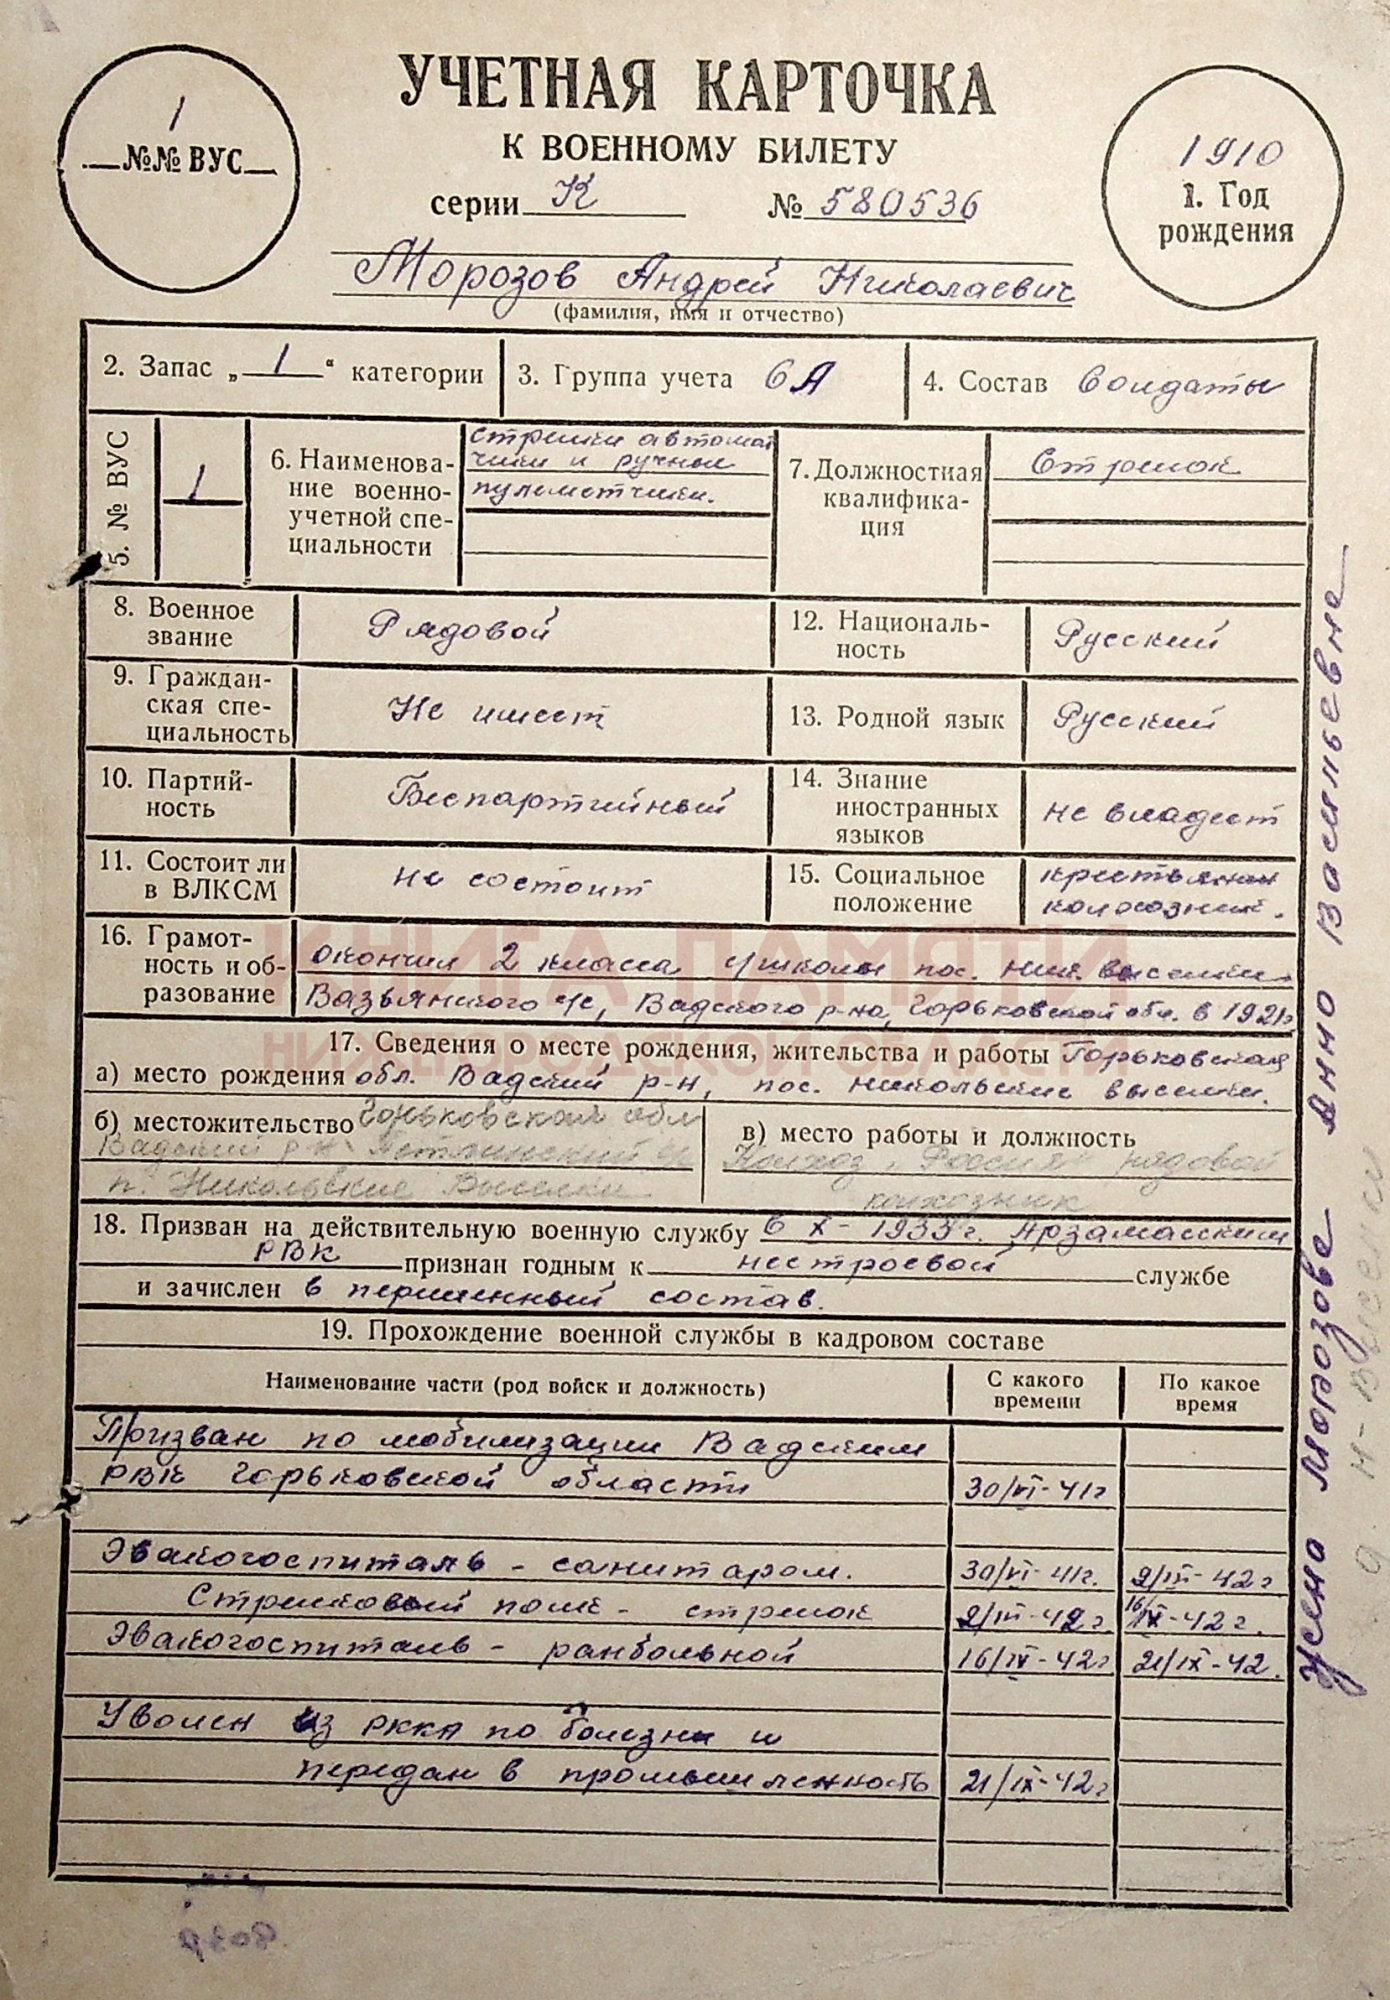 УЧЕТНАЯ КАРТОЧКА
К ВОЕННОМУ БИЛЕТУ
серии К № 580536
1
№№ ВУС
1910
1. Год
рождения
Морозов Андрей Николаевич
(фамилия, имя и отчество)
2. Запас „ 1 “ категории
3. Группа учета 6А
4. Состав Солдаты
5. № ВУС
1
6. Наименова-
ние военно-
учетной спе-
циальности
стрелки автомат
чики и ручные
пулеметчики.
7. Должностная
квалифика-
ция
Стрелок
8. Военное
звание
Рядовой
12. Националь-
ность
Русский
9. Граждан-
ская спе-
циальность
Не имеет
13. Родной язык
Русский
10. Партий-
ность
Беспартийный
14. Знание
иностранных
языков
не владеет
11. Состоит ли
в ВЛКСМ
не состоит
15. Социальное
положение
крестьянин
колхозник.
16. Грамот-
ность и об-
разование
окончил 2 класса с/школы пос. Ник. выселки
Вазьянского с/с, Вадского р-на, Горьковской обл. в 1921г
КНИГА ПАМЯТИ
НИЖЕГОРОДСКОЙ ОБЛАСТИ
17. Сведения о месте рождения, жительства и работы Горьковская
а) место рождения обл. Вадский р-н, пос. Никольские выселки.
б) местожительство Горьковской обл
Вадский р-н с/с
п. Никольские Выселки
в) место работы и должность
Колхоз „Россия“ рядовой
колхозник
18. Призван на действительную военную службу в X - 1933г. Арзамасским
РВК признан годным к нестроевой службе
и зачислен в переменный состав.
19. Прохождение военной службы в кадровом составе
Наименование части (род войск и должность)
С какого
времени
По какое
время
Призван по мобилизации Вадским
РВК Горьковской области 30/VI-41г
Эвакогоспиталь - санитаром. 30/VI-41г. 2/III-42г
Стрелковый полк - стрелок 2/III-42г. 16/IX-42г.
Эвакогоспиталь - ранбольной 16/IV-42г 21/IX-42.
Уволен из РККА по болезни и
передан в промышленность 21/IX-42г
Жена Морозова Анна Васильевна
Н-Выселки